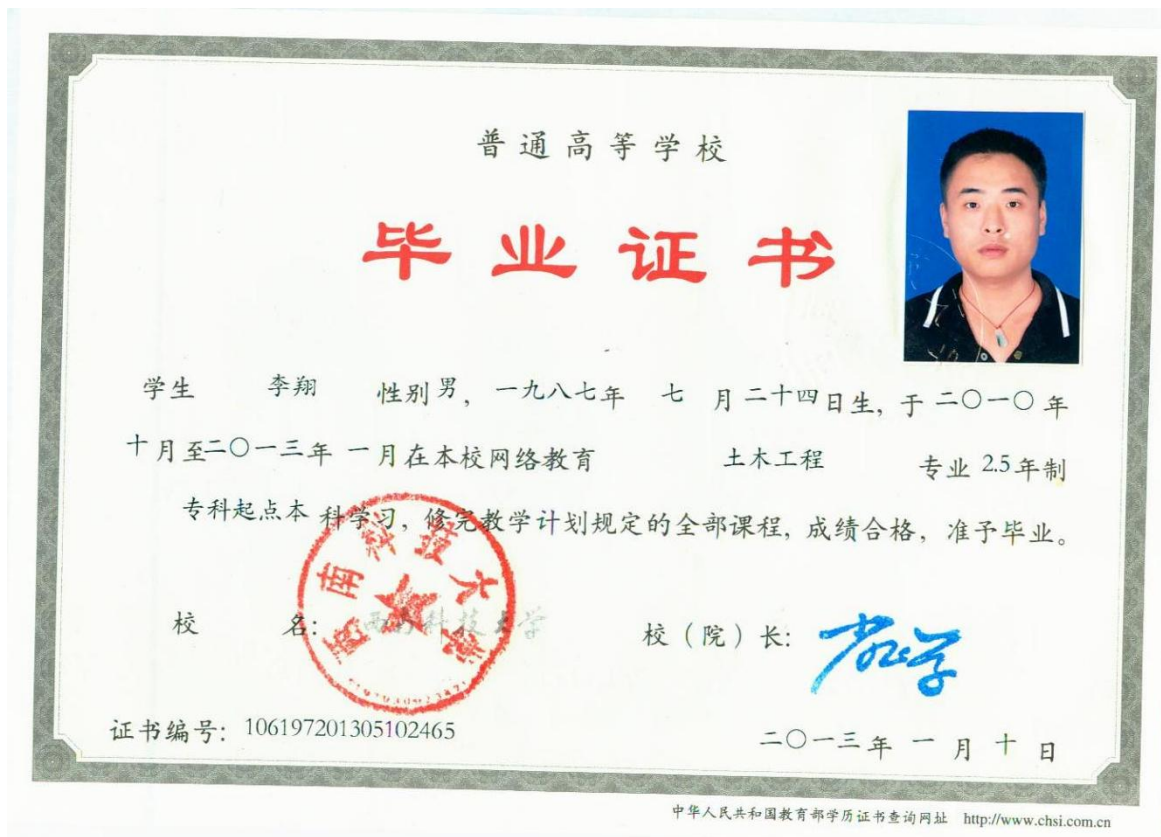 普通高等学校
毕业证书
学生 李翔 性别男，一九八七年 七 月二十四日生，于二〇一〇年
十月至二〇一三年 一月在本校网络教育 土木工程 专业 2.5年制
专科起点本 科学习，修完教学计划规定的全部课程，成绩合格，准予毕业。
校 名：西南科技大学 校（院）长：
西南科技大学
证书编号：106197201305102465
二〇一三年 一 月 十 日
中华人民共和国教育部学历证书查询网址 http://www.chsi.com.cn